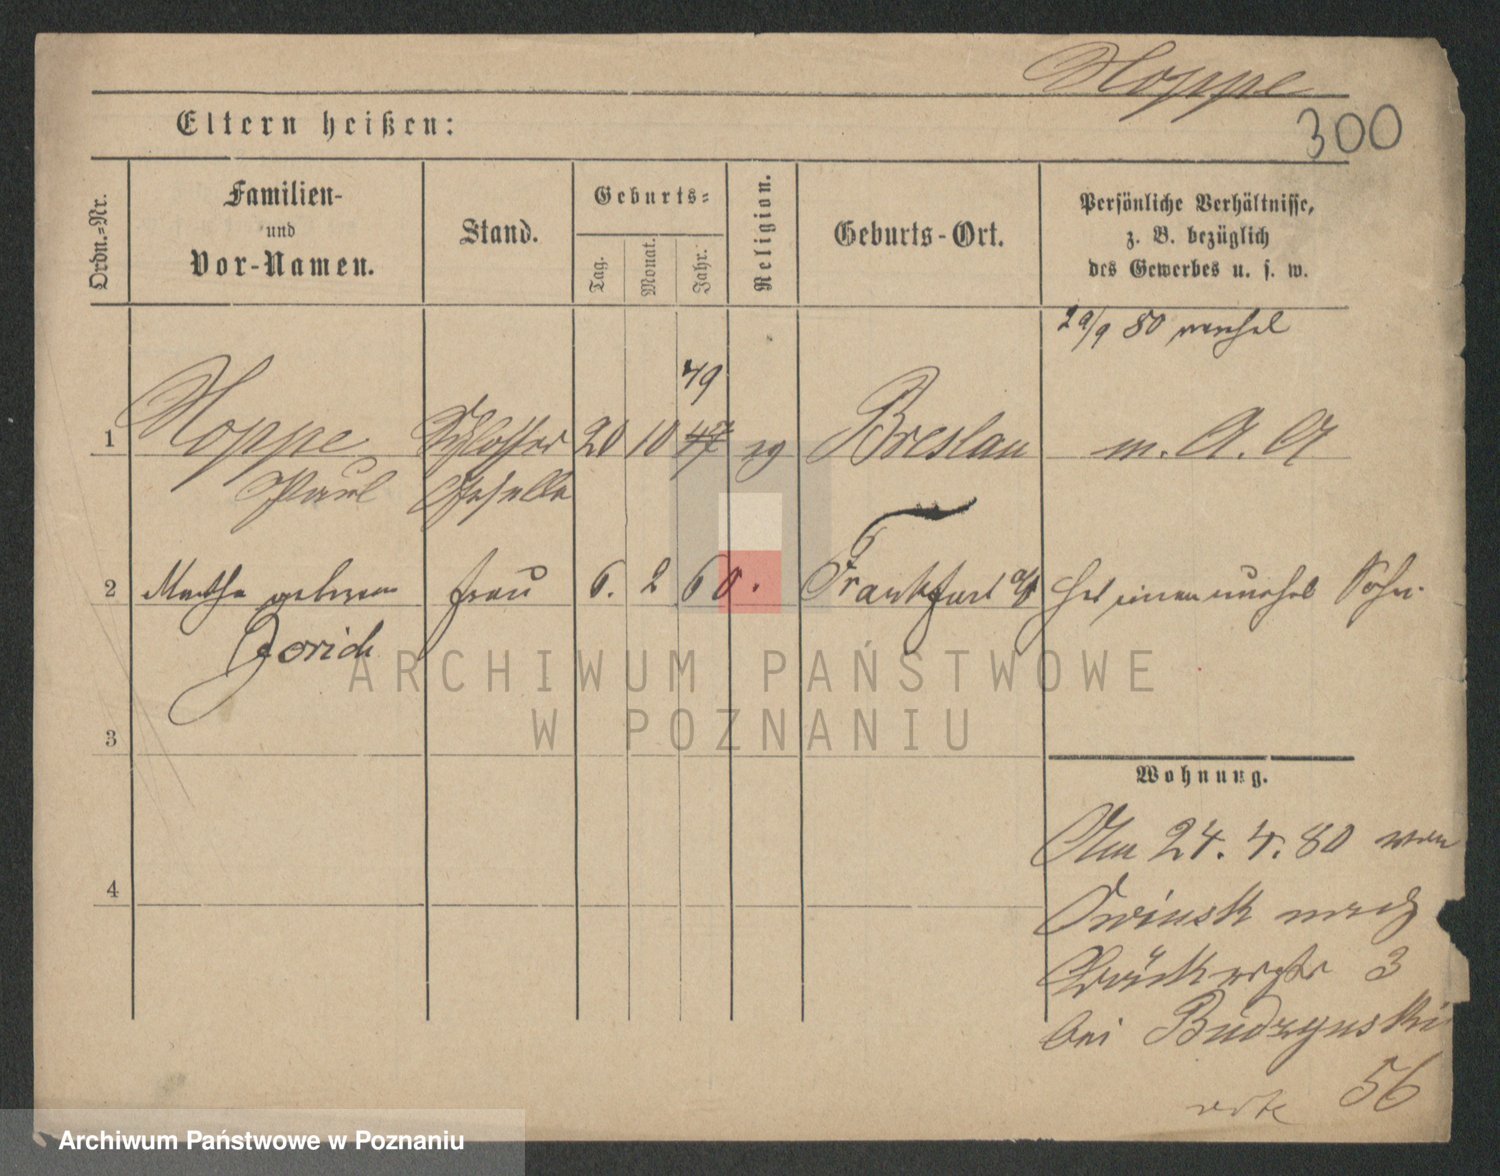 Hoppe
300
Eltern heißen:
Ordn.-Nr.
Familien-
und
Vor-Namen.
Stand.
Geburts-
Tag.
Monat.
Jahr.
Religion.
Geburts-Ort.
Persönliche Verhältnisse,
z. B. bezüglich
des Gewerbes u. s. w.
29/9 80
49
1 Hoppe Schlosser 20 10 47 Breslau m. A. A
Paul Geselle
2 Martha geborene Frau 6. 2 60. Frankfurt a/O hat einen unehel Sohn.
Jorich
ARCHIWUM PAŃSTWOWE
W POZNANIU
3
Wohnung.
Am 24. 4. 80 von
4
Owinsk nach
3
bei Budzynski
56
Archiwum Państwowe w Poznaniu